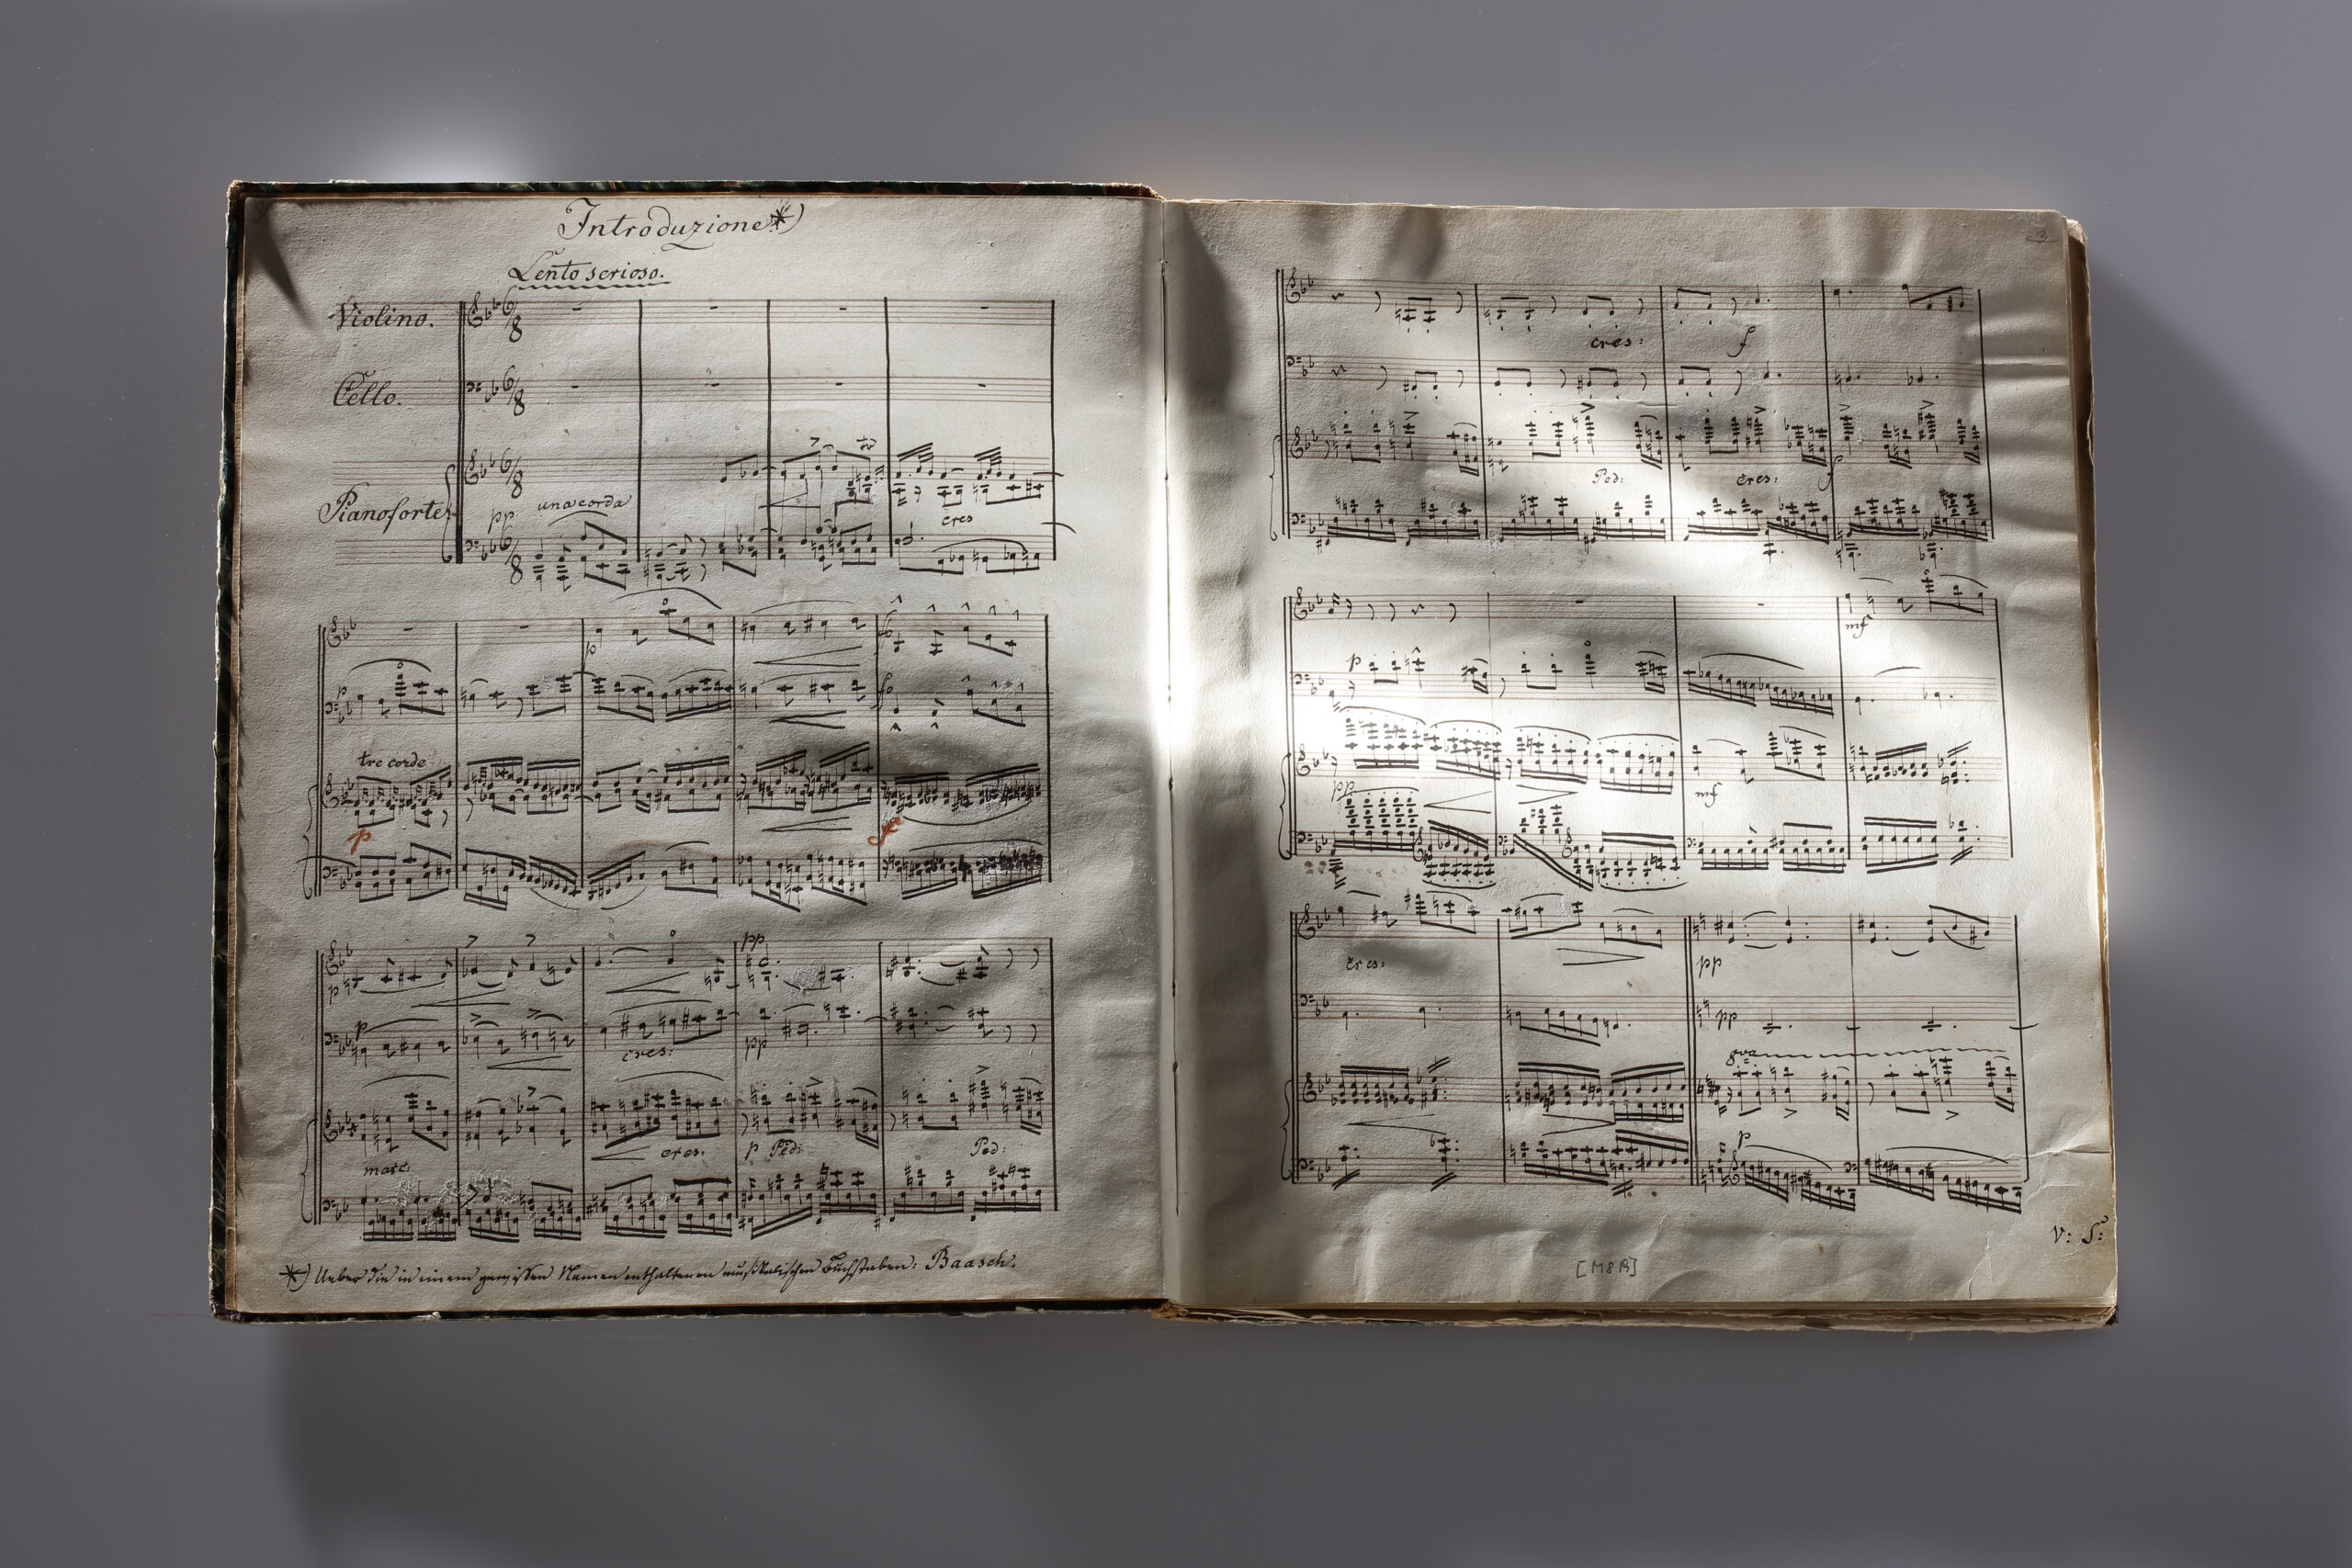 Introduzione *)
Lento serioso.
Violino. 6/8
Cello. 6/8
Pianoforte 6/8
pp una corda
cres
p
fo
p fo
tre corde
p f
pp
p
p
cres: pp
marc: cres. p Ped: Ped:
*) Ueber die in einem gewissen Namen enthaltenen musikalischen Buchstaben: Baasch.
3
cres: f
Ped: cres: f
mf
p
pp mf
cres: pp
pp
8va
p
V: S:
[M8R]